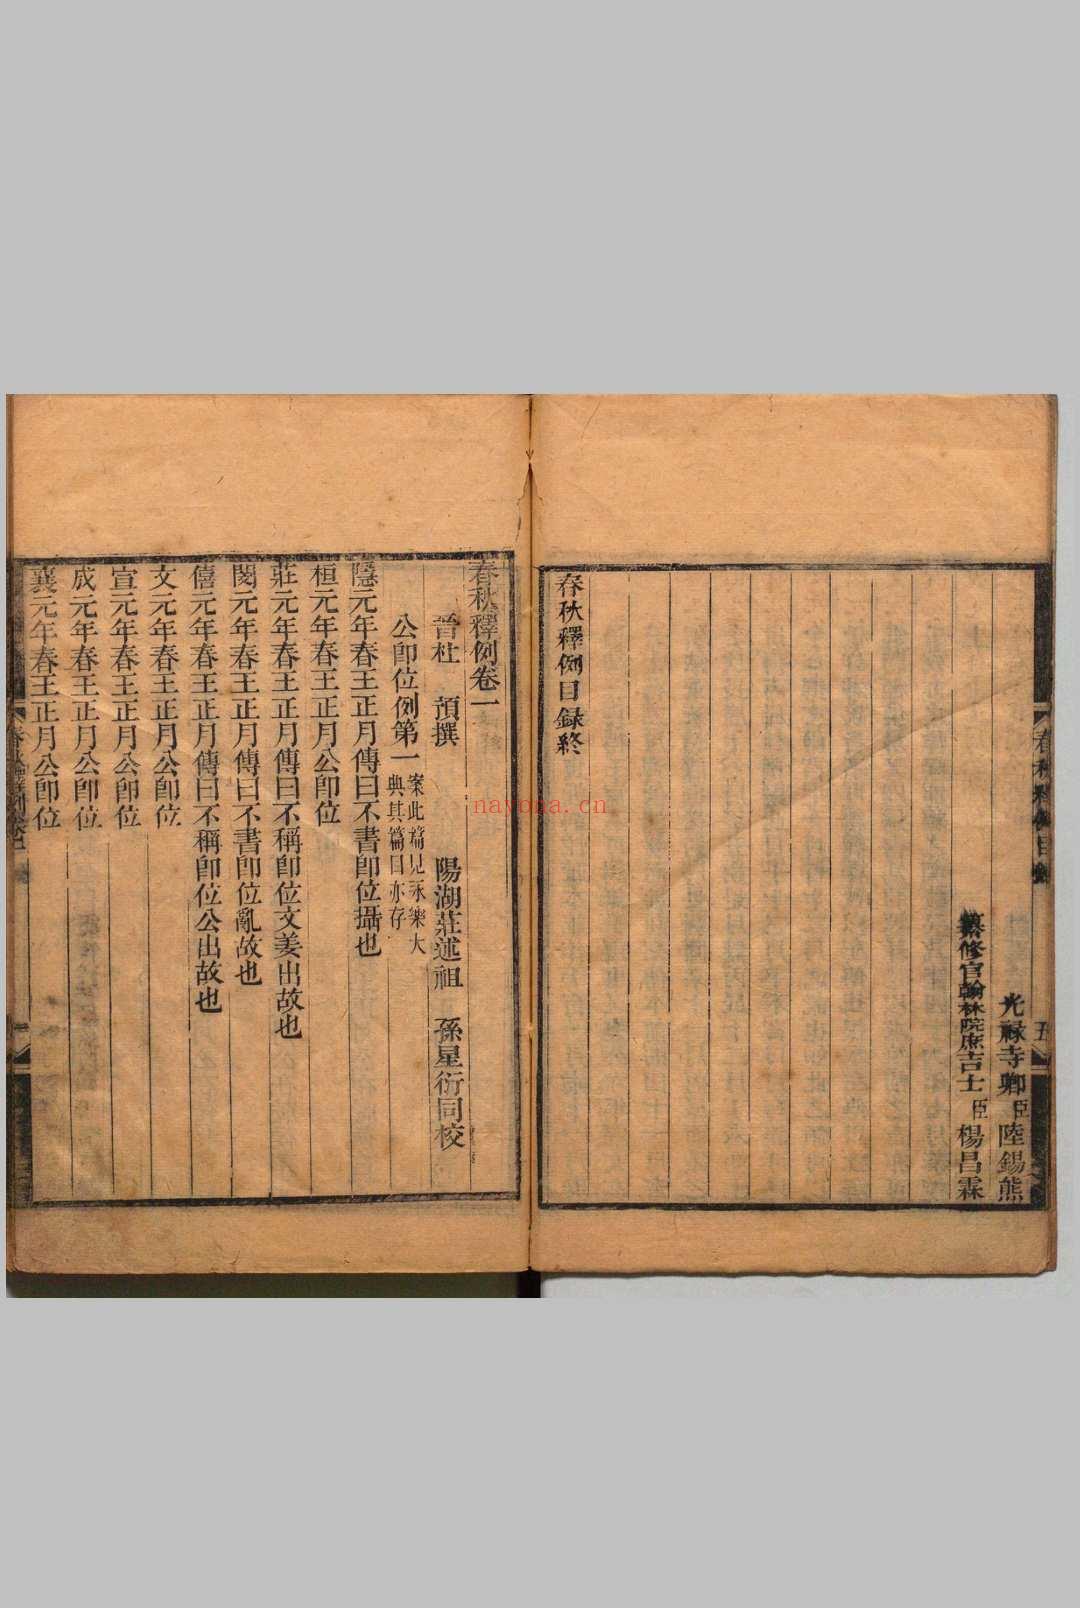 春秋釋例目錄
五
光祿寺卿臣陸錫熊
纂修官翰林院庶吉士臣楊昌霖
春秋釋例目錄終
春秋釋例卷一
晉杜預撰 陽湖莊述祖 孫星衍同校
公卽位例第一 案此篇見永樂大典其篇目亦存
隱元年春王正月傳曰不書卽位攝也
桓元年春王正月公卽位
莊元年春王正月傳曰不稱卽位文姜出故也
閔元年春王正月傳曰不書卽位亂故也
僖元年春王正月傳曰不稱卽位公出故也
文元年春王正月公卽位
宣元年春王正月公卽位
成元年春王正月公卽位
襄元年春王正月公卽位
nayona.cn